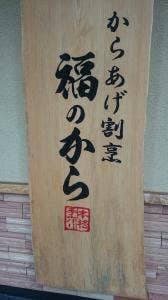 からあげ割烹
福のから